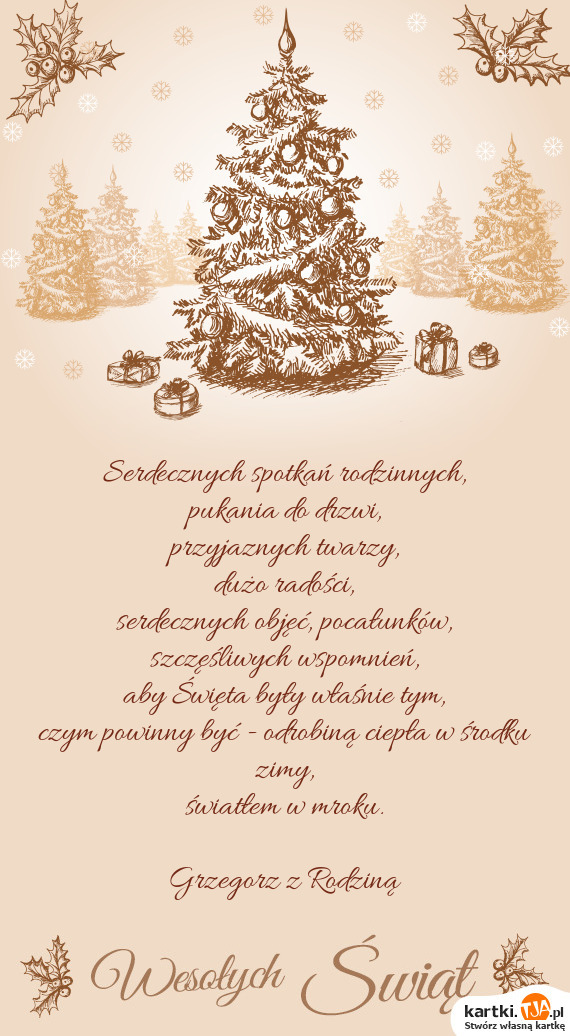 Serdecznych spotkań rodzinnych,
pukania do drzwi,
przyjaznych twarzy,
dużo radości,
serdecznych objęć, pocałunków,
szczęśliwych wspomnień,
aby Święta były właśnie tym,
czym powinny być - odrobiną ciepła w środku
zimy,
światłem w mroku.
Grzegorz z Rodziną
Wesołych Świąt
kartki.TJA.pl
Stwórz własną kartkę